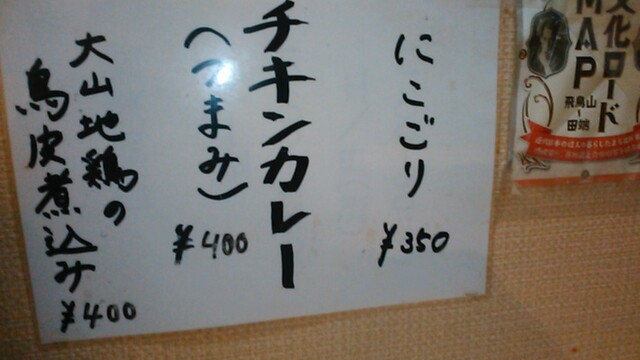 文化ロード
MAP
飛鳥山
〜
田端
にこごり
¥350
チキンカレー
(つまみ)
¥400
大山地鶏の
鳥皮煮込み
¥400